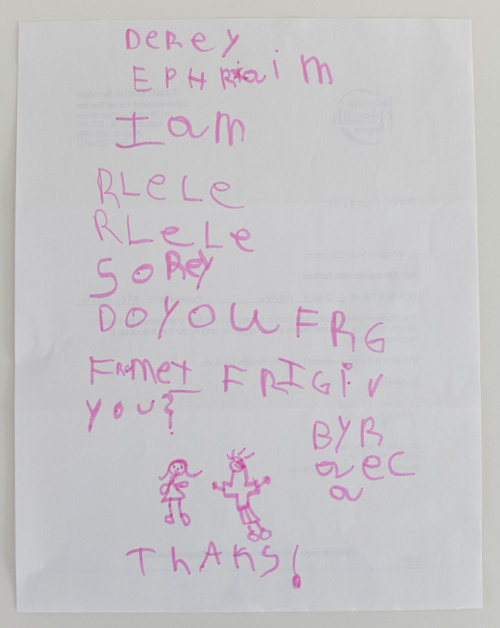 DeReY
EPHRaim
I am
RLeLe
RLeLe
SoReY
DOYOU FRG
FRomet FRIGiv
you?
BYR
aec
a
ThAKS!